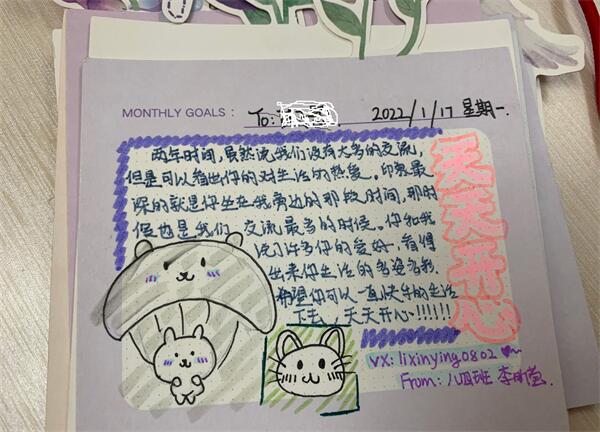 MONTHLY GOALS: To: 2022/1/17 星期一.
两年时间,虽然说我们没有太多的交流,
但是可以看出你的对生活的热爱。印象最
深的就是你坐在我旁边的那段时间,那时
候也是我们交流最多的时候。你和我
说了许多你的爱好,看得
出来你生活的多姿多彩,
希望你可以一直快乐的生活
下去,天天开心!!!!!!
天天开心
VX: lixinying0802
From: 八四班 李昕莹